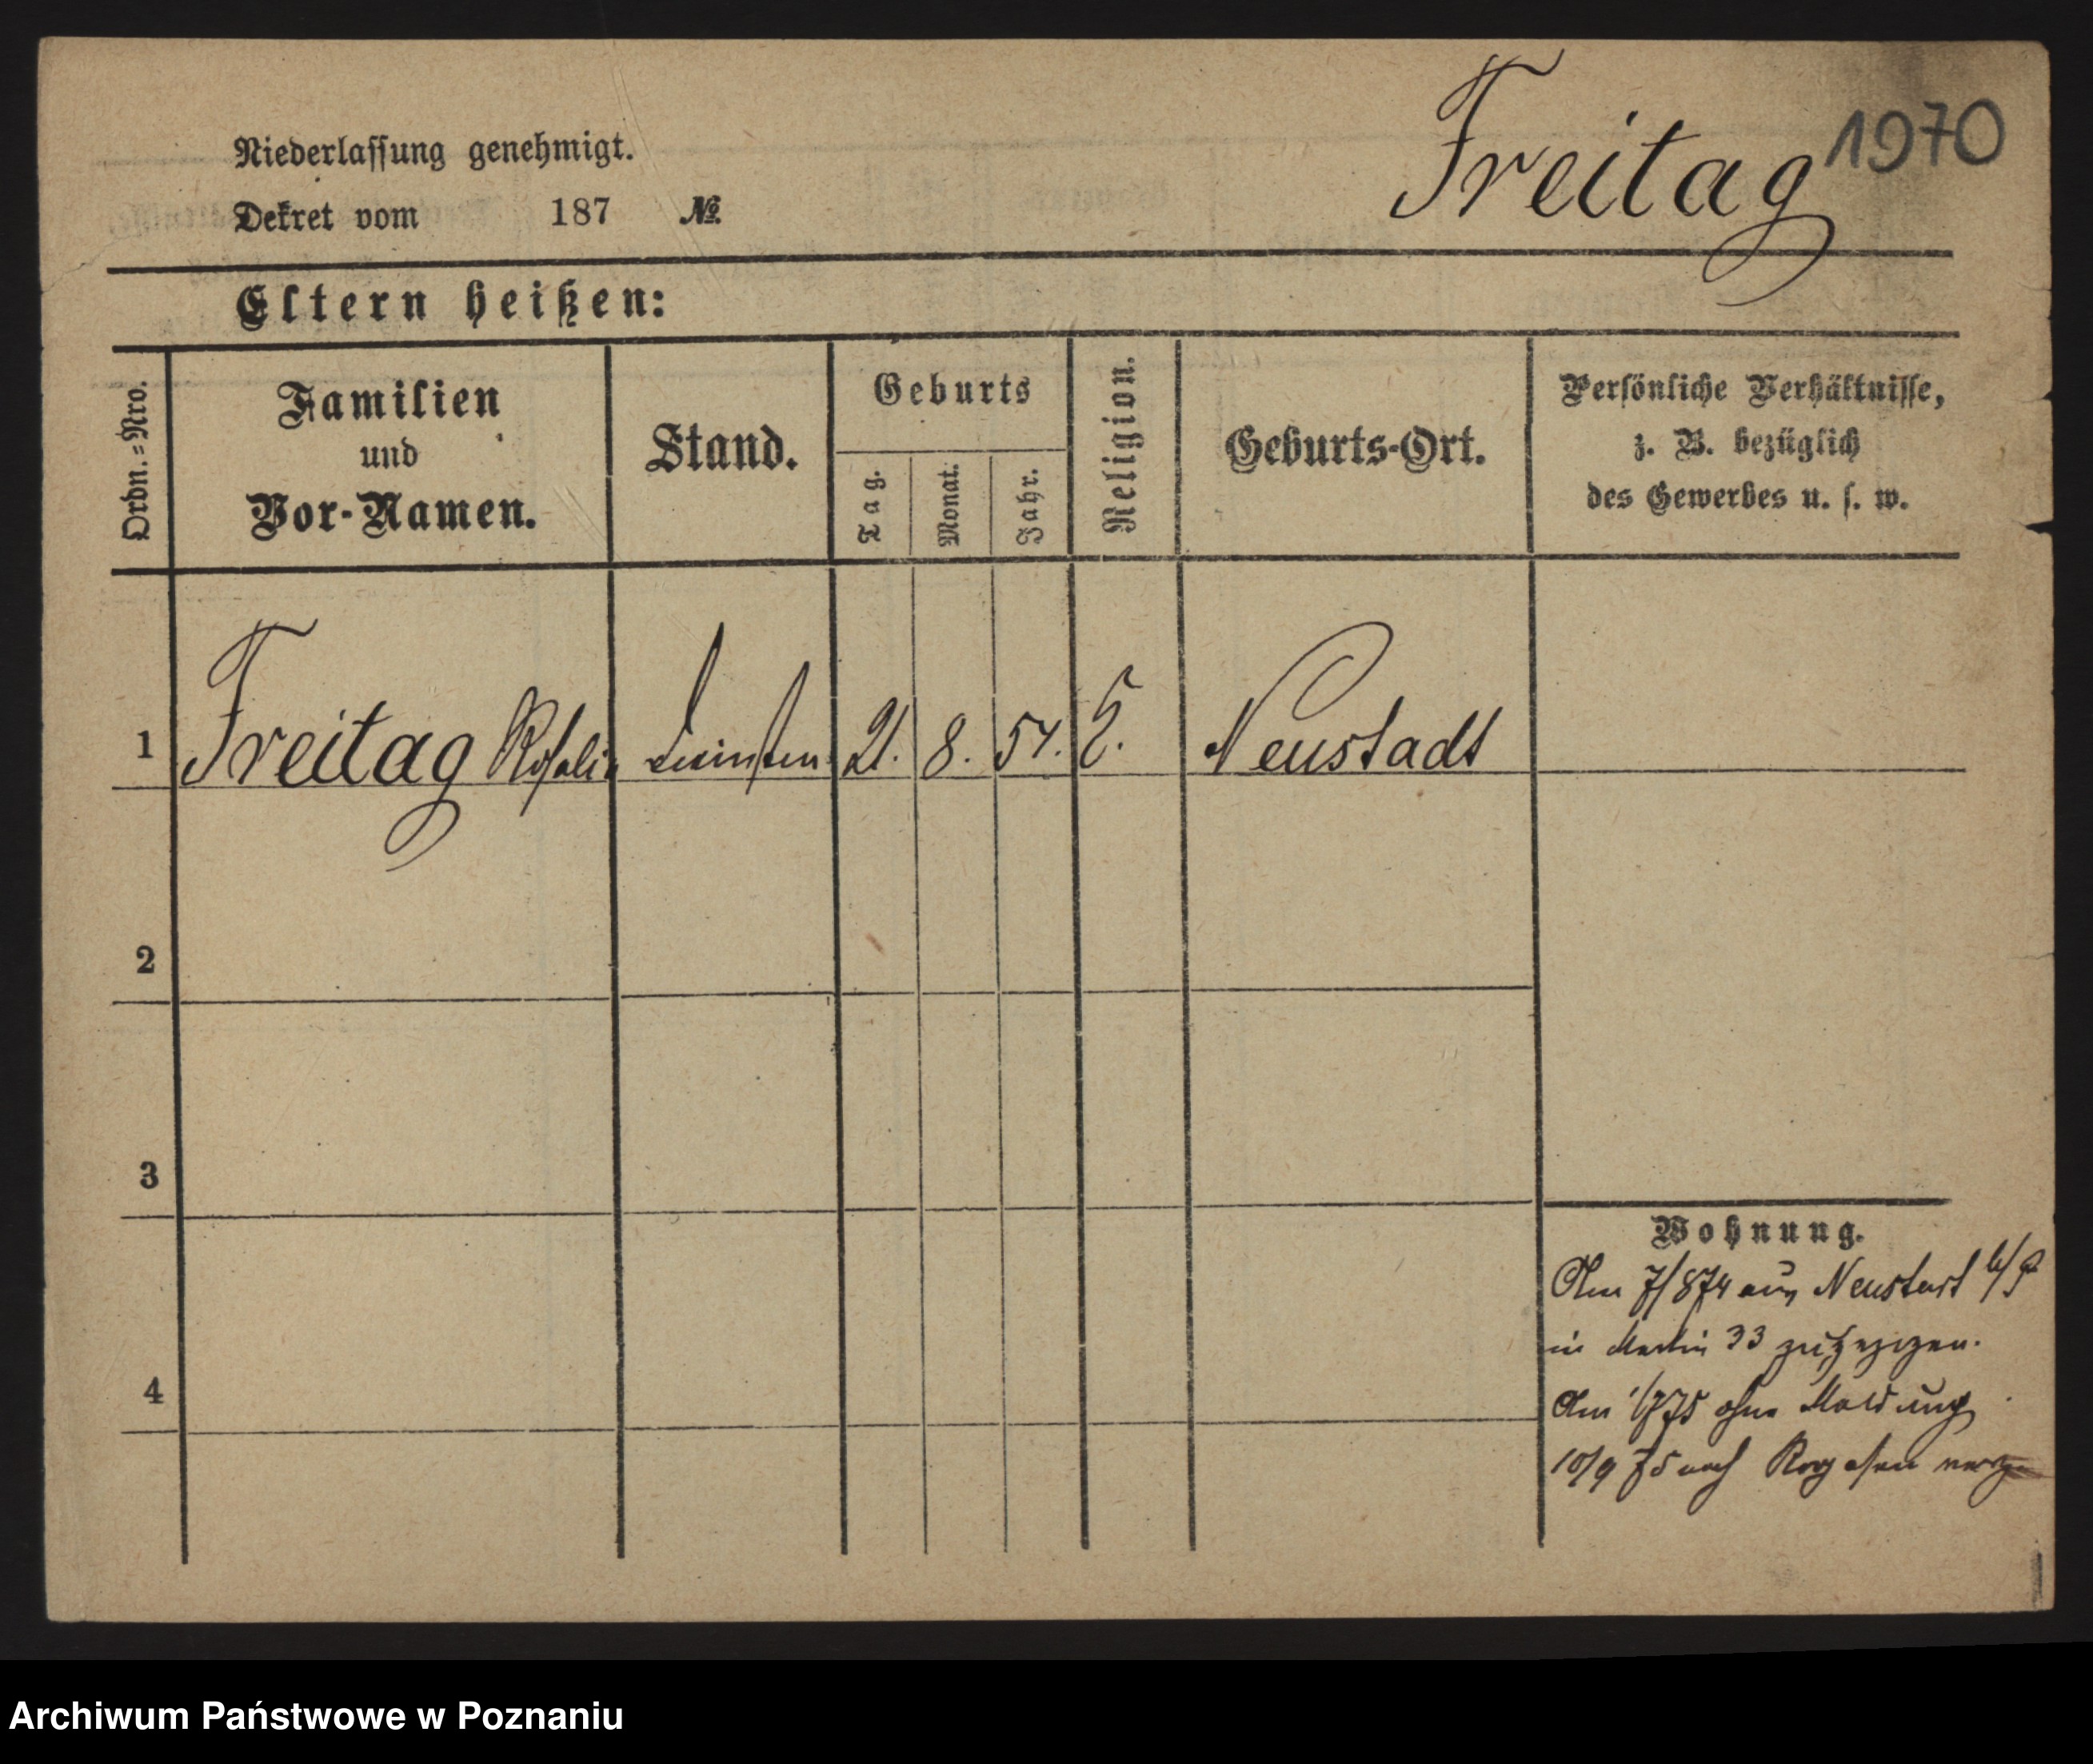 Freitag 1970
Niederlassung genehmigt.
Dekret vom 187 №
Eltern heißen:
Ordn.=Nro.
Familien
und
Vor-Namen.
Stand.
Geburts
Tag.
Monat.
Jahr.
Religion.
Geburts-Ort.
Persönliche Verhältnisse,
z. B. bezüglich
des Gewerbes u. s. w.
1 Freitag Rosalie 21. 8. 54. Neustadt
2
3
4
Wohnung.
Am 7/8 74 aus Neustadt b/P
in Martin 33 zugezogen.
Am 1/7 75 ohne Meldung
10/9 75 nach Rogasen verz.
Archiwum Państwowe w Poznaniu